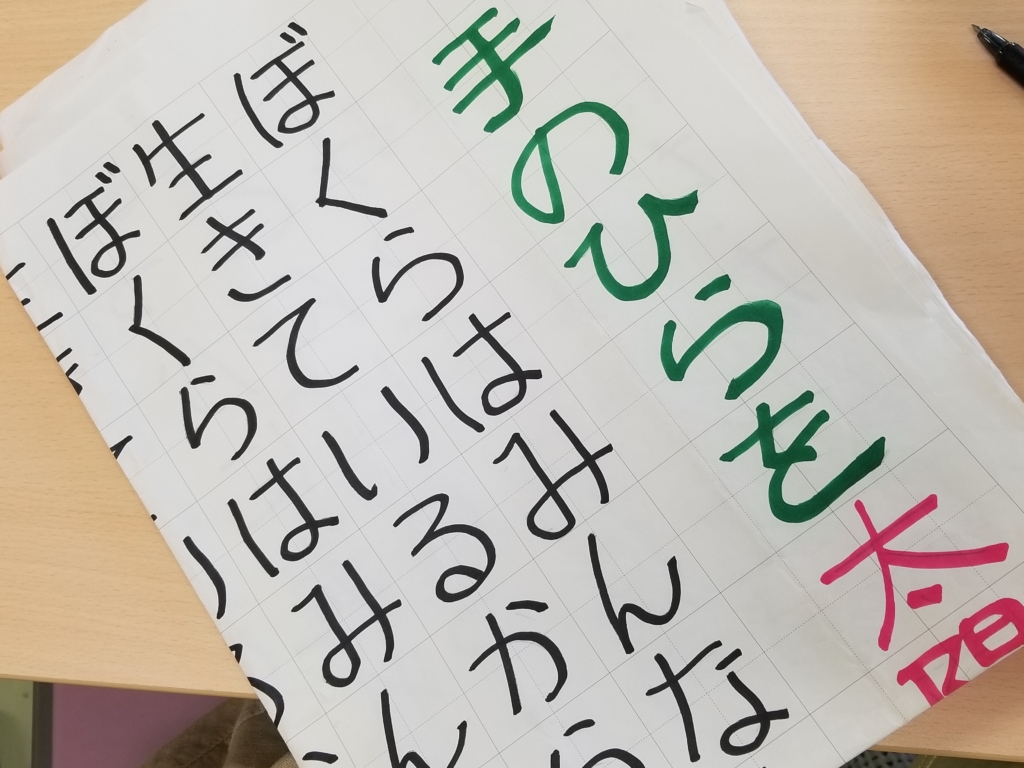 手のひらを太陽
ぼくらはみんな
生きているから
ぼくらはみん